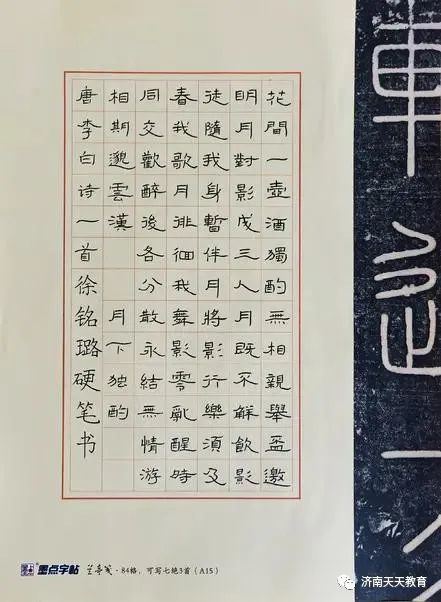 花間一壺酒獨酌無相親舉盃邀
明月對影成三人月既不解飲影
徒隨我身暫伴月將影行樂須及
春我歌月徘徊我舞影零亂醒時
同交歡醉後各分散永結無情游
相期邈雲漢 月下独酌
唐李白诗一首徐铭璐硬笔书
墨点字帖 兰亭笺·84格，可写七绝3首（A15）
济南天天教育